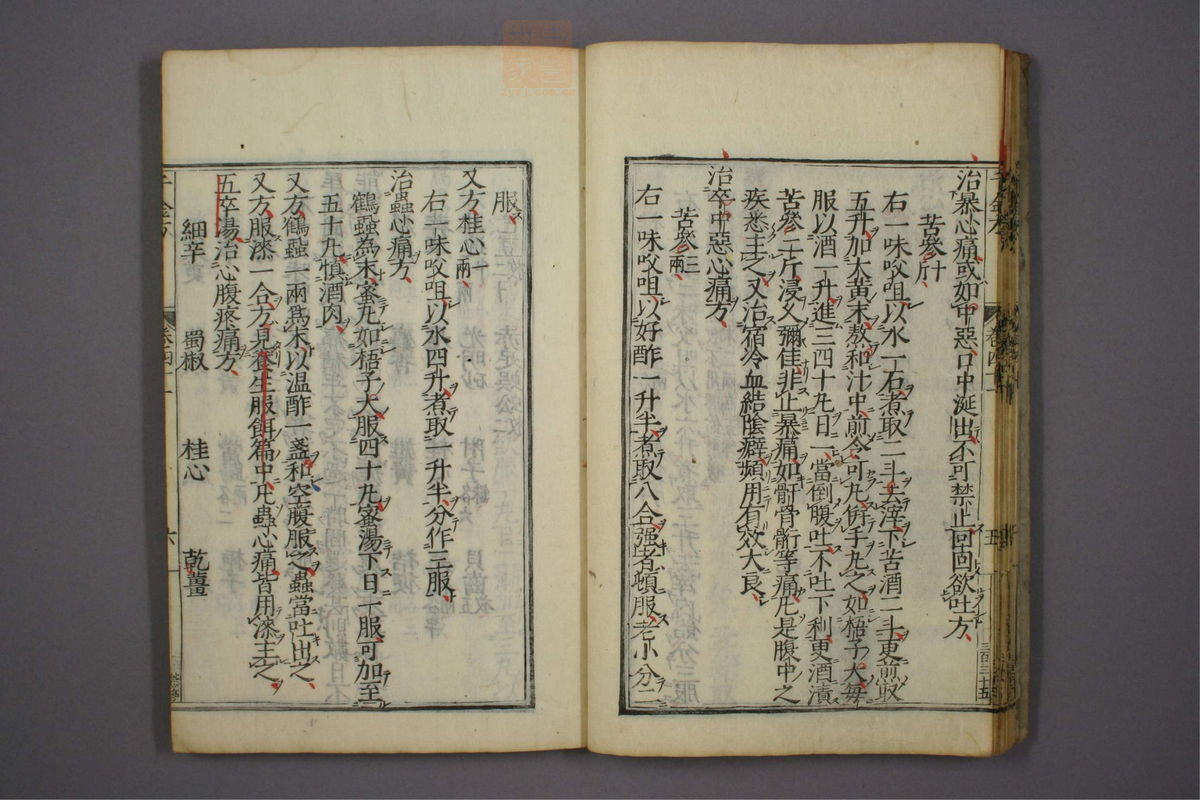 治暴心痛或如中惡口中涎出不可禁止回回欲吐方
苦參十斤
右一味㕮咀以水一石煮取二斗去滓下苦酒二斗更煎取
五升加大黃末熬和汁中煎令可丸併手丸之如梧子大每
服以酒一升進三四十丸日一當倒腹吐不吐下利更酒漬
苦參二斤浸久彌佳非止暴痛如骭骨䯒等痛凡是腹中之
疾悉主之又治宿冷血結陰癖頻用有效大良
治卒中惡心痛方
苦參三兩
右一味㕮咀以好酢一升半煮取八合强者頓服老小分二
服
又方桂心一兩
右一味㕮咀以水四升煮取一升半分作三服
治蟲心痛方
鶴蝨為末蜜丸如梧子大服四十丸蜜湯下日一服可加至
五十丸慎酒肉
又方鶴蝨一兩爲末以温酢一盞和空腹服之蟲當吐出之
又方服漆一合方見養生服餌篇中凡蟲心痛皆用漆主之
五卒湯治心腹疼痛方
細辛 蜀椒 桂心 乾薑